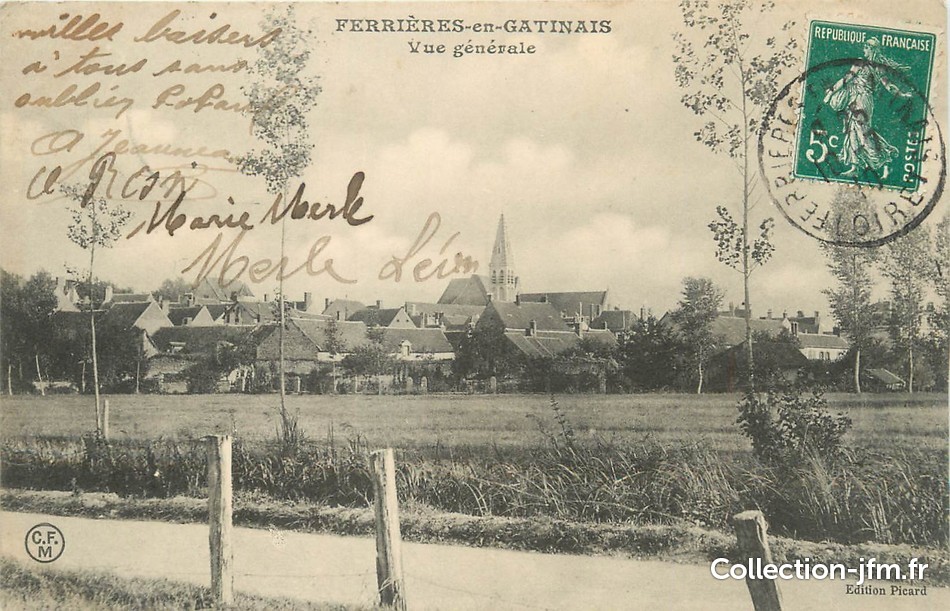 FERRIÈRES-en-GATINAIS
Vue générale
milles baisers
à tous sans
oublier
A Jeanneau
Marie Merle
Merle Léon
REPUBLIQUE FRANÇAISE
5c
POSTES
FERRIERES
LOIRET
C.F.
M
Collection-jfm.fr
Edition Picard